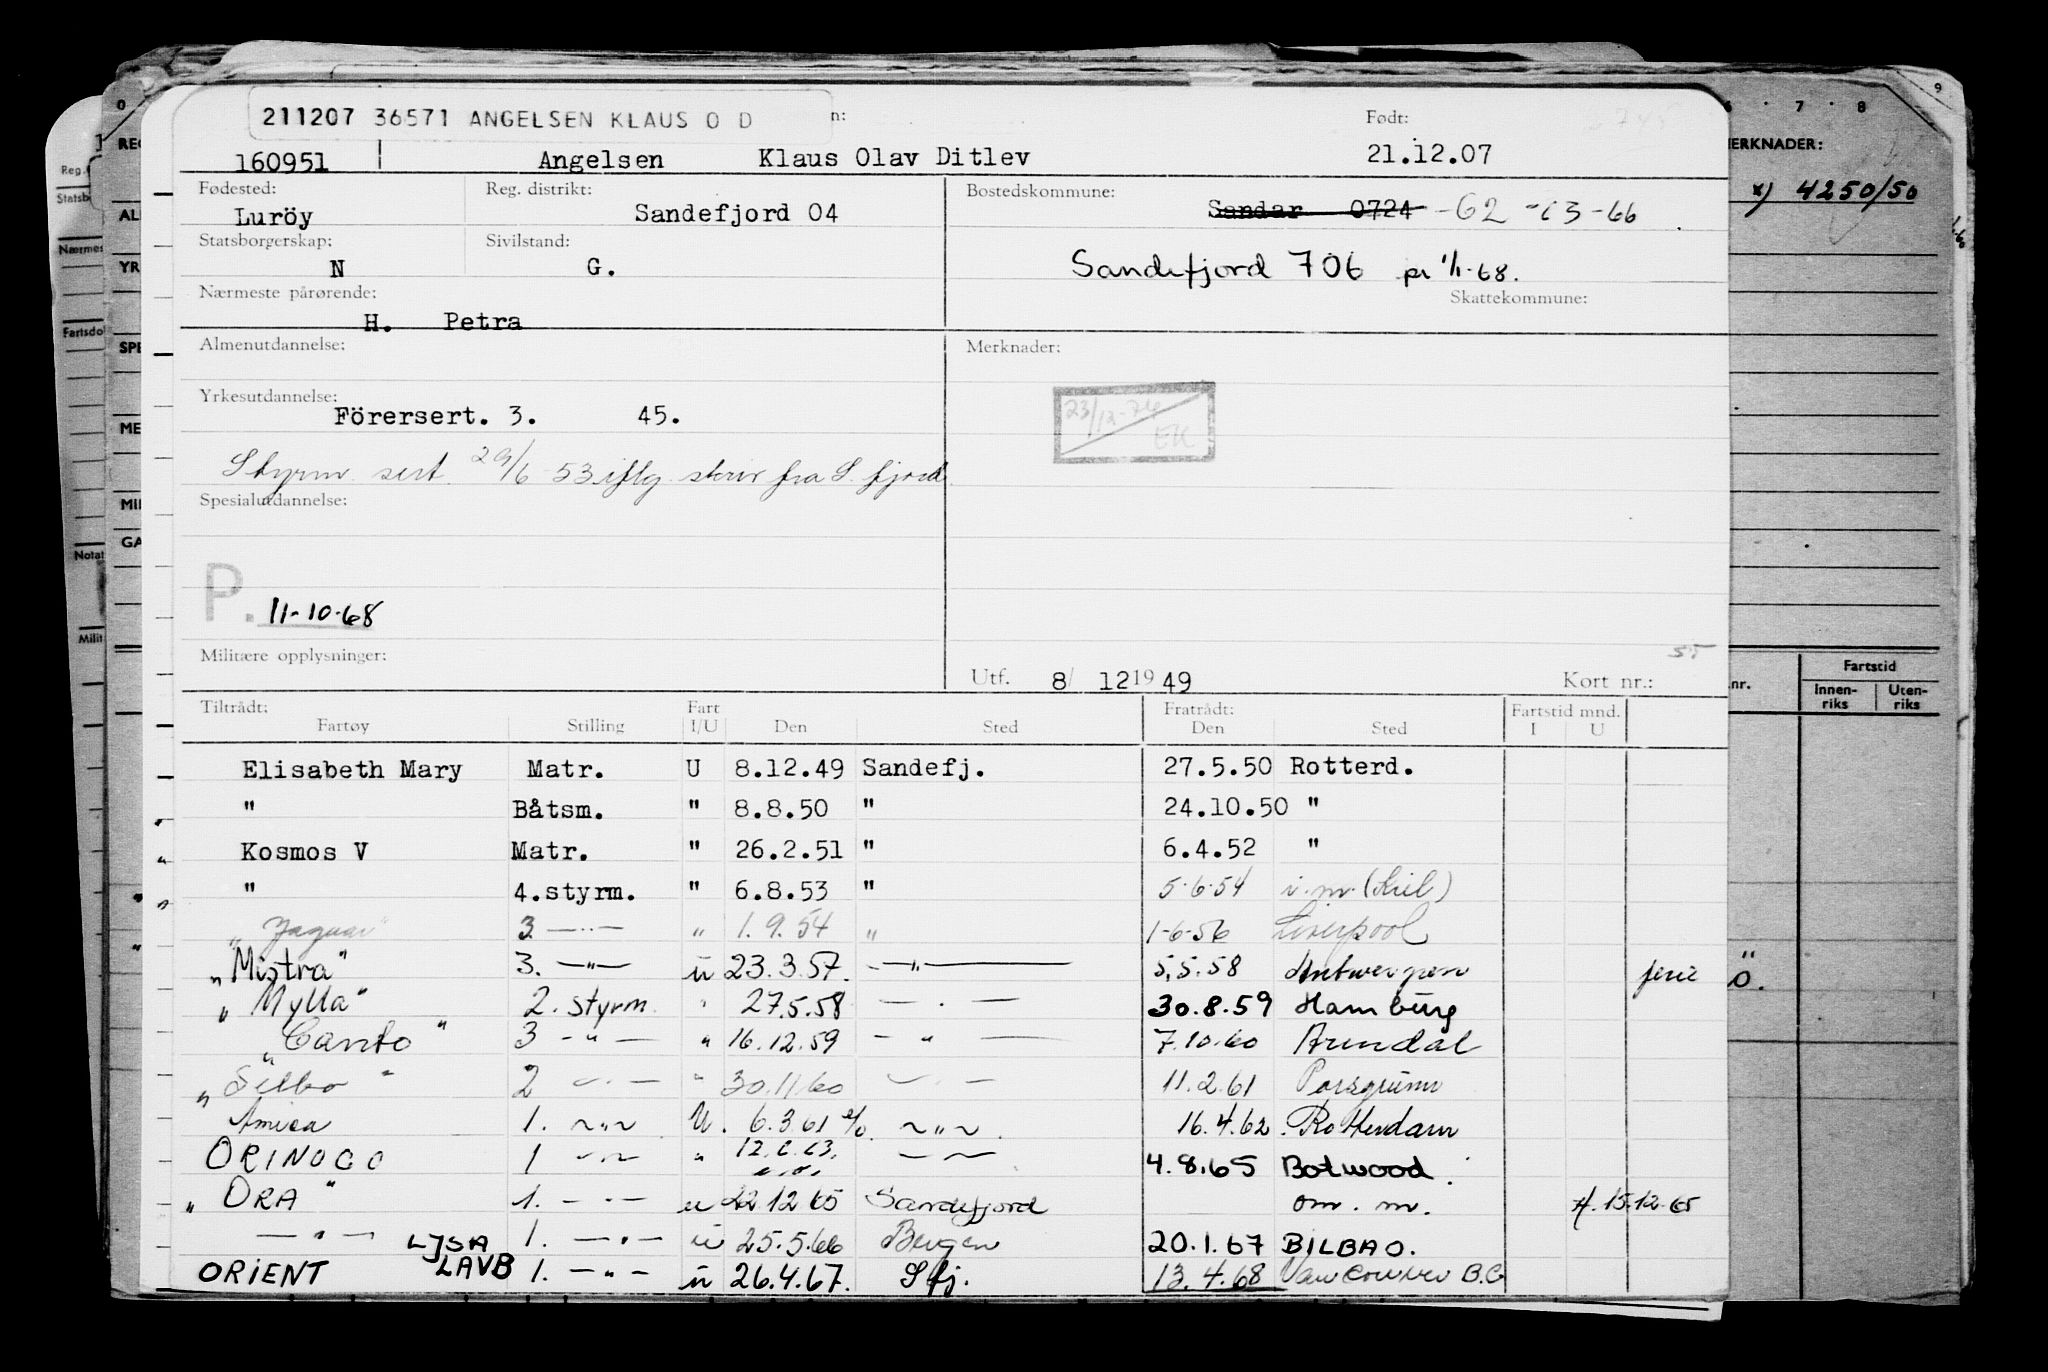 211207 36571 ANGELSEN KLAUS O D n: Født:
160951 Angelsen Klaus Olav Ditlev 21.12.07
Fødested: Reg. distrikt: Bostedskommune:
Luröy Sandefjord 04 Sandar 0724 -62 -13-66
Statsborgerskap: Sivilstand:
N G. Sandefjord 706 pr 1/1-68.
Nærmeste pårørende: Skattekommune:
H. Petra
Almenutdannelse: Merknader:
Yrkesutdannelse:
Förersert. 3. 45.
23/12-76
EK
Styrm. sert. 29/6 53 iflg. skriv fra S. fjord
Spesialutdannelse:
P. 11-10-68
Militære opplysninger:
Utf. 8/ 12 19 49 Kort nr.:
Tiltrådt: Fart Fratrådt: Fartstid mnd.
Fartøy Stilling I/U Den Sted Den Sted I U
Elisabeth Mary Matr. U 8.12.49 Sandefj. 27.5.50 Rotterd.
" Båtsm. " 8.8.50 " 24.10.50 "
Kosmos V Matr. " 26.2.51 " 6.4.52 "
" 4.styrm. " 6.8.53 " 5-6-54 i.m. (Kiel)
"Jaguar" 3. —"— " 1.9.54 " 1-6-56 Liverpool
"Mistra" 3. —"— u 23.3.57. —"— 5.5.58 Antwerpen ferie
"Mylla" 2. styrm. " 27.5.58 — " — 30.8.59 Hamburg
"Canto" 3 — " — " 16.12.59 — " — 7.10.60 Arendal
"Silbo" 2 — " — " 30.11.60 — " — 11.2.61 Porsgrunn
Amica 1. ~"~ U. 6.3.61 ~"~. 16.4.62. Rotterdam
ORINOCO 1 ~"~ " 12.6.63. — " — 4.8.65 Botwood.
"ORA" 1. — " — u 22.12.65 Sandefjord om. m. 15.12.65
— " — LJSA 1. — " — u 25.5.66 Bergen 20.1.67 BILBAO.
ORIENT LAVB 1. — " — u 26.4.67. Sfj. 13.4.68 Vancouver B.C
0
REG
Reg.
Statsb
AL
Nærmes
YR
Fartsdo
SPE
ME
MIL
GA
Notat
Milit
6 · 7 · 8 9
MERKNADER:
x) 4250/50
nr. Fartstid
Innen-riks Uten-riks